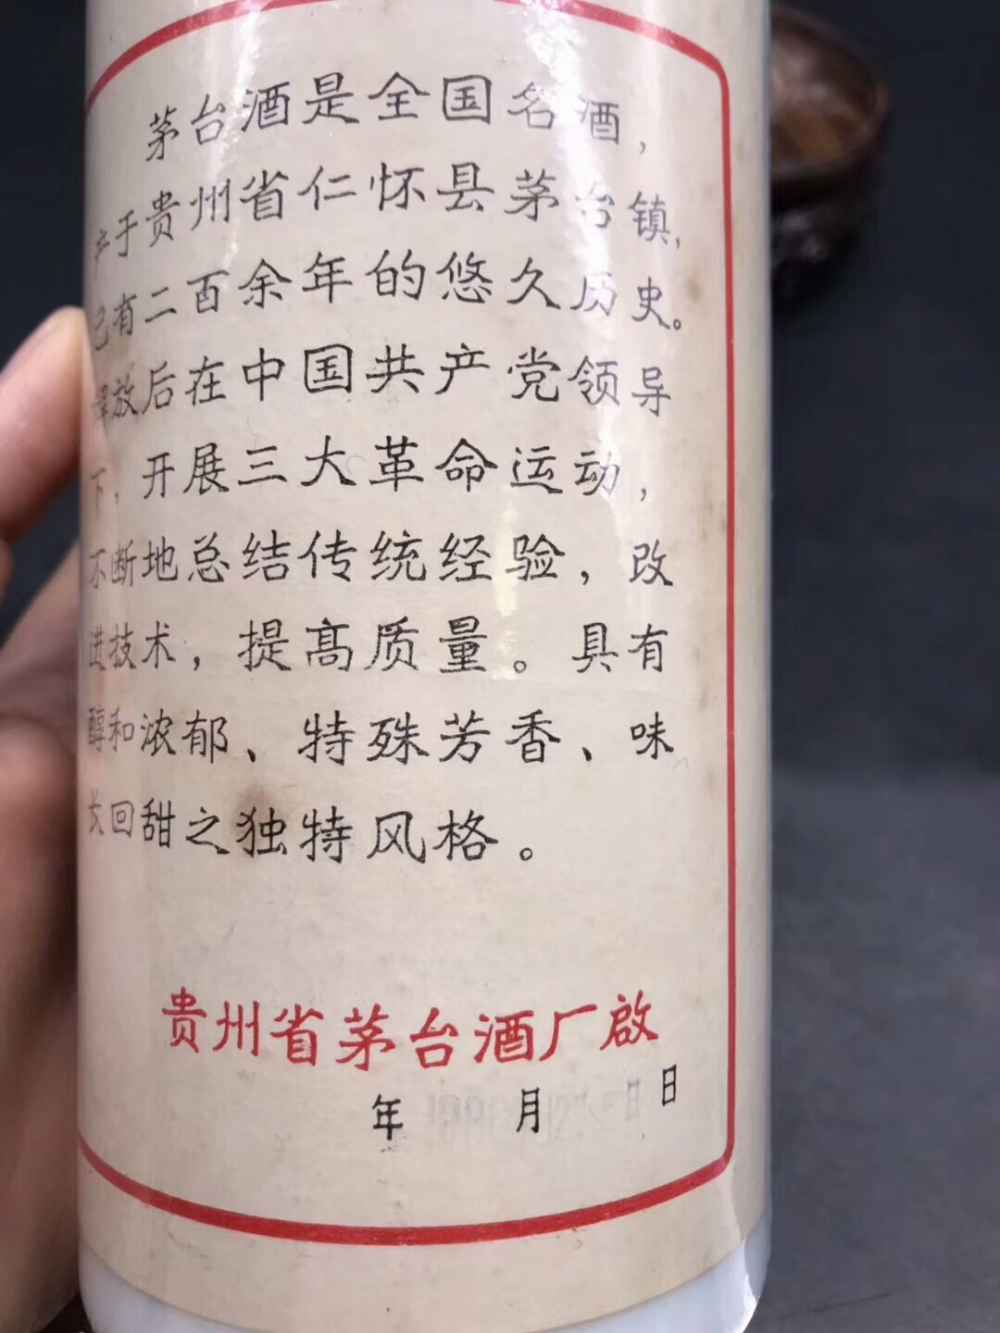 茅台酒是全国名酒，
产于贵州省仁怀县茅台镇，
已有二百余年的悠久历史。
释放后在中国共产党领导
下，开展三大革命运动，
不断地总结传统经验，改
进技术，提高质量。具有
醇和浓郁、特殊芳香、味
长回甜之独特风格。
贵州省茅台酒厂啟
年 月 日